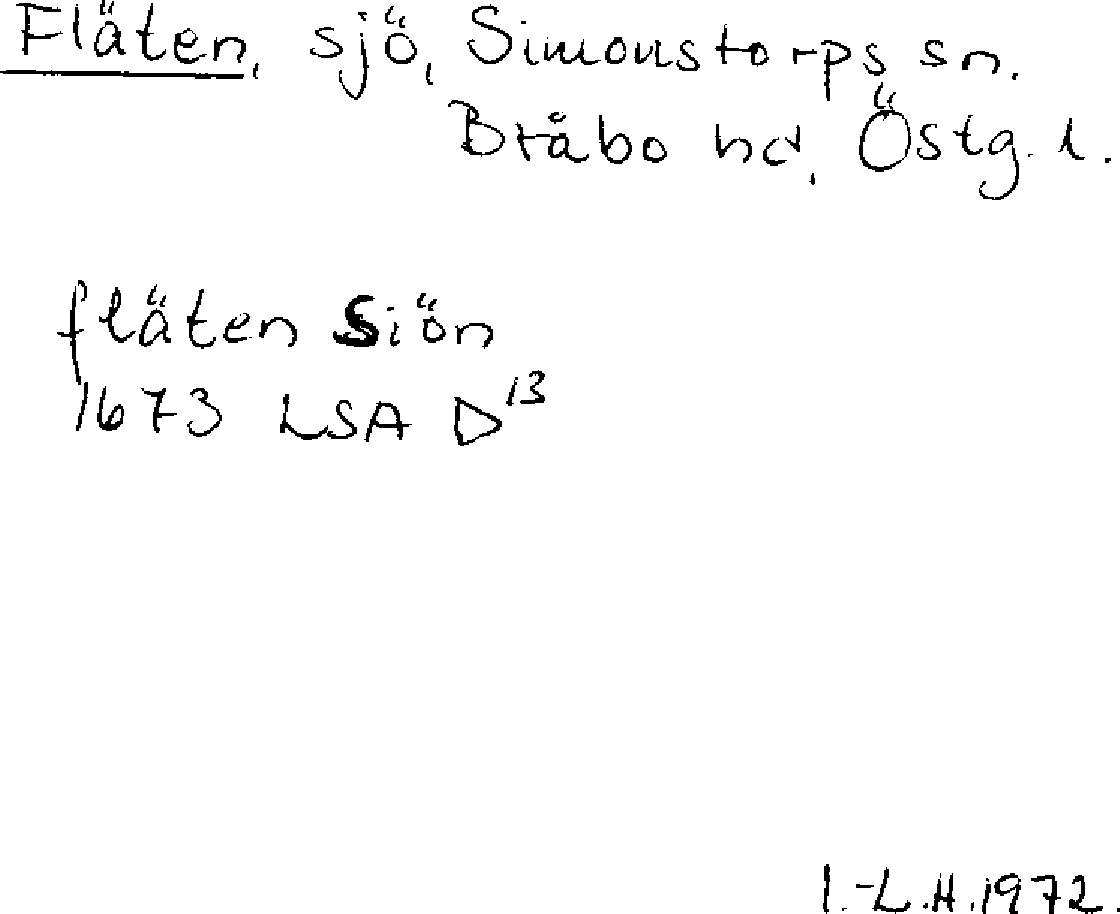 Fläten, sjö, Simonstorps sn.
Bråbo hd, Östg. l.
fläten Siön
1673 LSA D¹³
I.-L.H.1972.